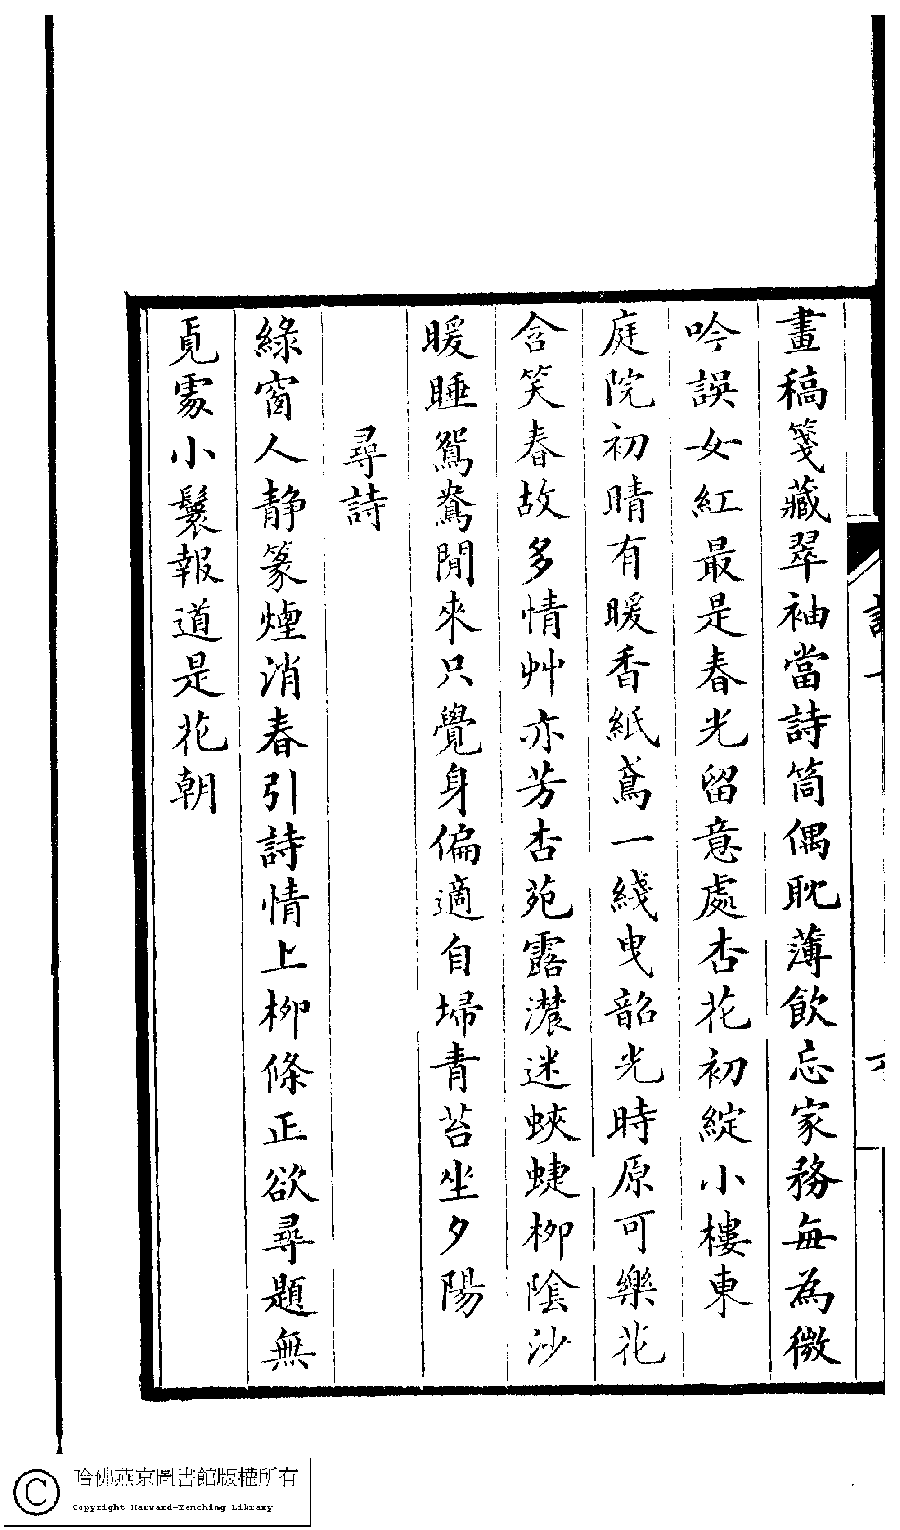 畫稿箋藏翠袖當詩筒偶耽薄飲忘家務每為微
吟誤女紅最是春光留意處杏花初綻小樓東
庭院初晴有暖香紙鳶一綫曳韶光時原可樂花
含笑春故多情艸亦芳杏苑露濃迷蛺蜨柳陰沙
暖睡鴛鴦閒來只覺身偏適自埽青苔坐夕陽
尋詩
綠窗人靜篆煙消春引詩情上柳條正欲尋題無
覓處小鬟報道是花朝
哈佛燕京圖書館版權所有
Copyright Harvard-Yenching Library